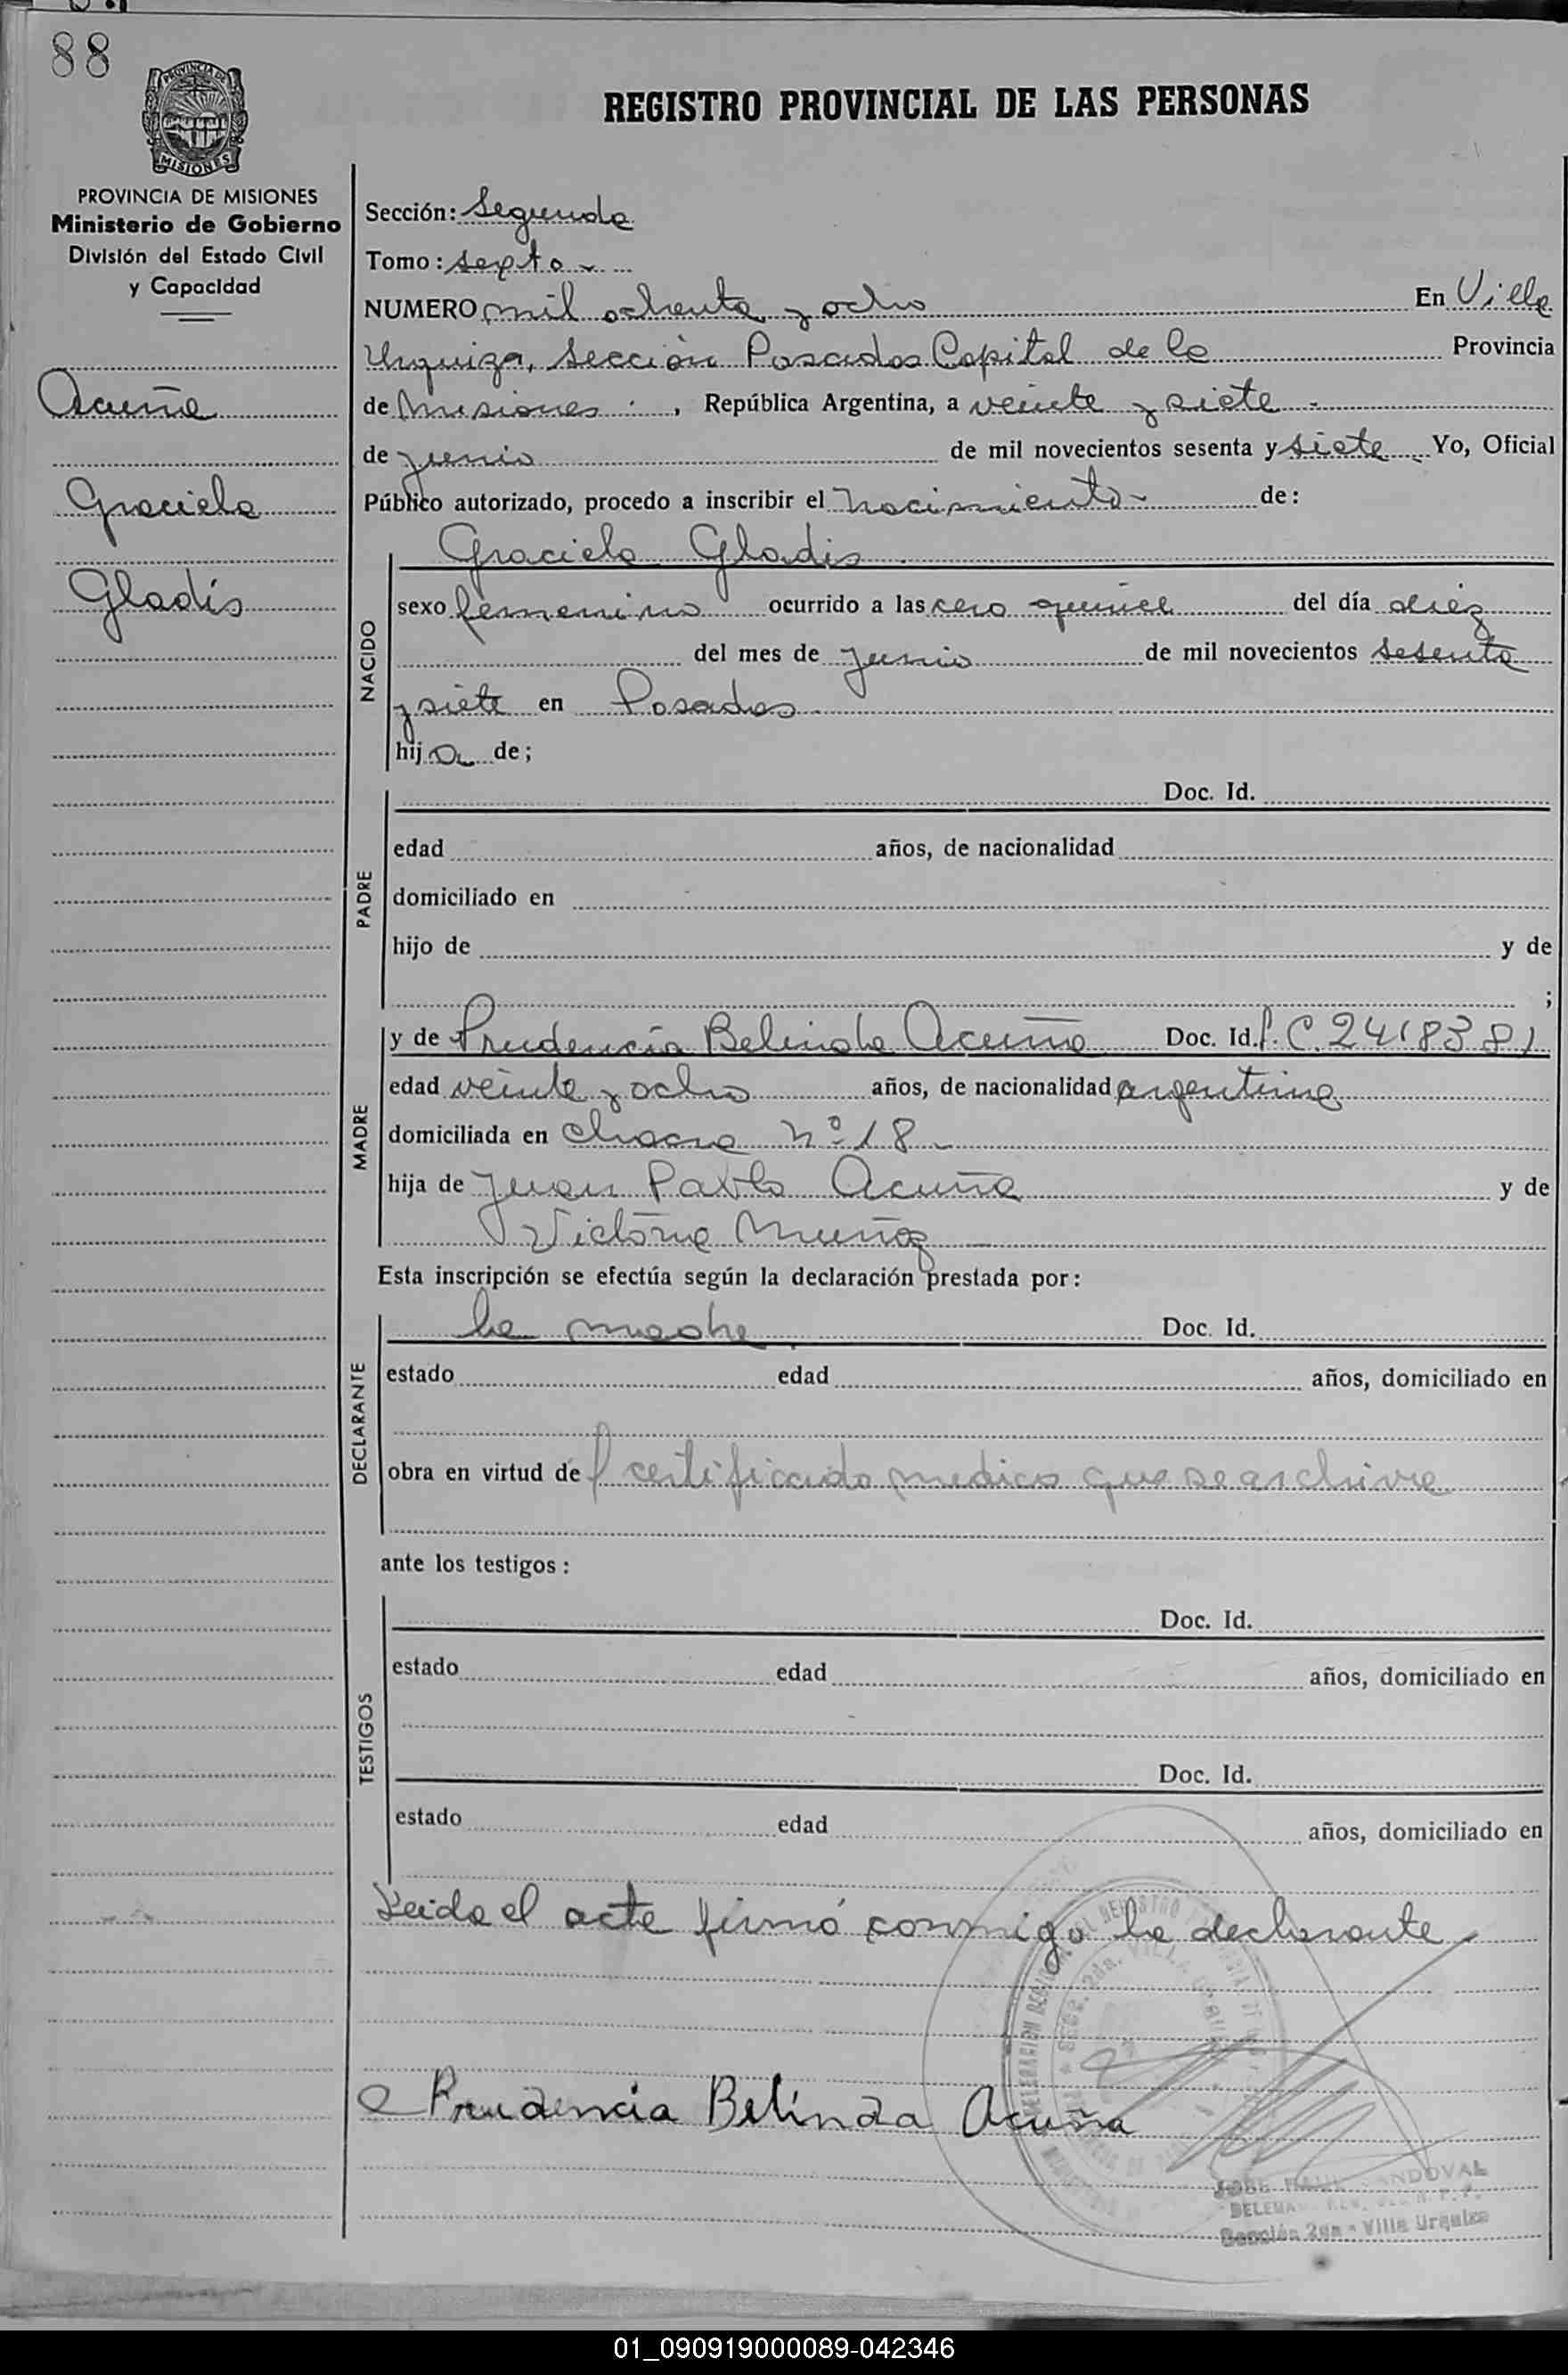 88
PROVINCIA DE
MISIONES
REGISTRO PROVINCIAL DE LAS PERSONAS
PROVINCIA DE MISIONES
Ministerio de Gobierno
División del Estado Civil
y Capacidad
Acuña
Graciela
Gladis
Sección: Segunda
Tomo: sexto
NUMERO mil ochenta y ocho En Villa
Urquiza, Sección Posadas Capital de la Provincia
de Misiones, República Argentina, a veinte y siete
de junio de mil novecientos sesenta y siete Yo, Oficial
Público autorizado, procedo a inscribir el nacimiento de:
NACIDO
Graciela Gladis
sexo femenino ocurrido a las cero quince del día diez
del mes de junio de mil novecientos sesenta
y siete en Posadas
hija de;
PADRE
Doc. Id.
edad años, de nacionalidad
domiciliado en
hijo de y de
;
MADRE
y de Prudencia Belinda Acuña Doc. Id. C. 2418381
edad veinte y ocho años, de nacionalidad argentina
domiciliada en chacra Nº 18
hija de Juan Pablo Acuña y de
Victoria Muñoz
Esta inscripción se efectúa según la declaración prestada por:
DECLARANTE
la madre Doc. Id.
estado edad años, domiciliado en
obra en virtud del certificado medico que se archiva
ante los testigos:
TESTIGOS
Doc. Id.
estado edad años, domiciliado en
Doc. Id.
estado edad años, domiciliado en
Leida el acta firmó conmigo la declarante
Prudencia Belinda Acuña
JOSE RAUL SANDOVAL
Sección 2da - Villa Urquiza
01_090919000089-042346